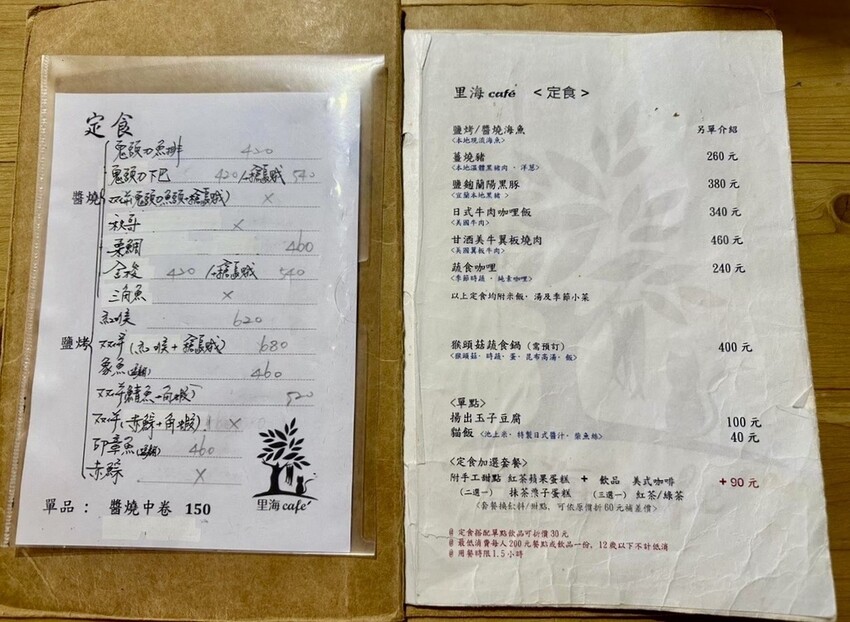 定食
鬼頭刀魚排 420
鬼頭刀下巴 420 540
醬燒 双拼(鬼頭刀魚頭 ) x
秋哥 x
460
420 540
三角魚 x
紅喉 620
鹽烤 双拼(紅喉+ ) 680
象魚 460
双拼(鯖魚+角蝦) 520
双拼(赤鯮+角蝦) x
印章魚 460
赤鯮 x
單品： 醬燒中卷 150
里海 café
里海 café <定食>
鹽烤/醬燒海魚 另單介紹
<本地現流海魚>
薑燒豬 260 元
<本地溫體黑豬肉、洋蔥>
鹽麴蘭陽黑豚 380 元
<宜蘭本地黑豬>
日式牛肉咖哩飯 340 元
<美國牛肉>
甘酒美牛翼板燒肉 460 元
<美國翼板牛肉>
蔬食咖哩 240 元
<季節時蔬、純素咖哩>
以上定食均附米飯、湯及季節小菜
猴頭菇蔬食鍋 (需預訂) 400 元
<猴頭菇、時蔬、蛋、昆布高湯、飯>
<單點>
揚出玉子豆腐 100 元
貓飯 <池上米、特製日式醬汁、柴魚絲> 40 元
<定食加選套餐>
附手工甜點 紅茶蘋果蛋糕 + 飲品 美式咖啡 +90 元
(二選一) 抹茶戚子蛋糕 (三選一) 紅茶/綠茶
<套餐換鬆餅/甜點，可依原價折 60 元補差價>
@ 定食搭配單點飲品可折價30元
@ 最低消費每人200元餐點或飲品一份，12歲以下不計低消
@ 用餐時限1.5小時